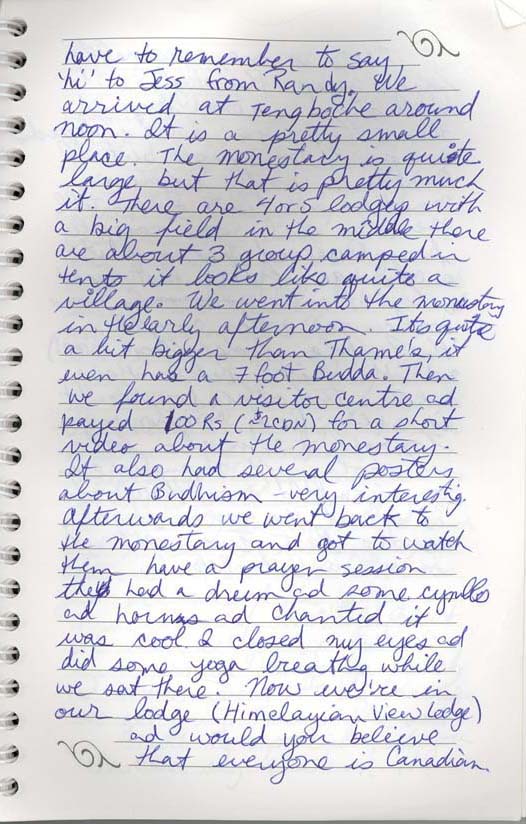 have to remember to say
'hi' to Jess from Randy. We
arrived at Tengboche around
noon. It is a pretty small
place. The monestary is quiote
large, but that is pretty much
it. There are 4 or 5 lodges with
a big field in the middle there
are about 3 group camped in
tents it looks like quite a
village. We went into the monestary
in the early afternoon. Its quite
a bit bigger than Thame's, it
even has a 7 foot Budda. Then
we found a visitor centre ad
payed 100 Rs (~$2CDN) for a short
video about the monestary.
It also had several posters
about Budhism - very interestig.
Afterwards we went back to
the monestary and got to watch
them have a prayer session
they had a drum ad some cymbles
ad horns ad chanted it
was cool I closed my eyes ad
did some yoga breathg while
we sat there. Now we're in
our lodge (Himelayian View Lodge)
ad would you believe
that everyone is Canadian.